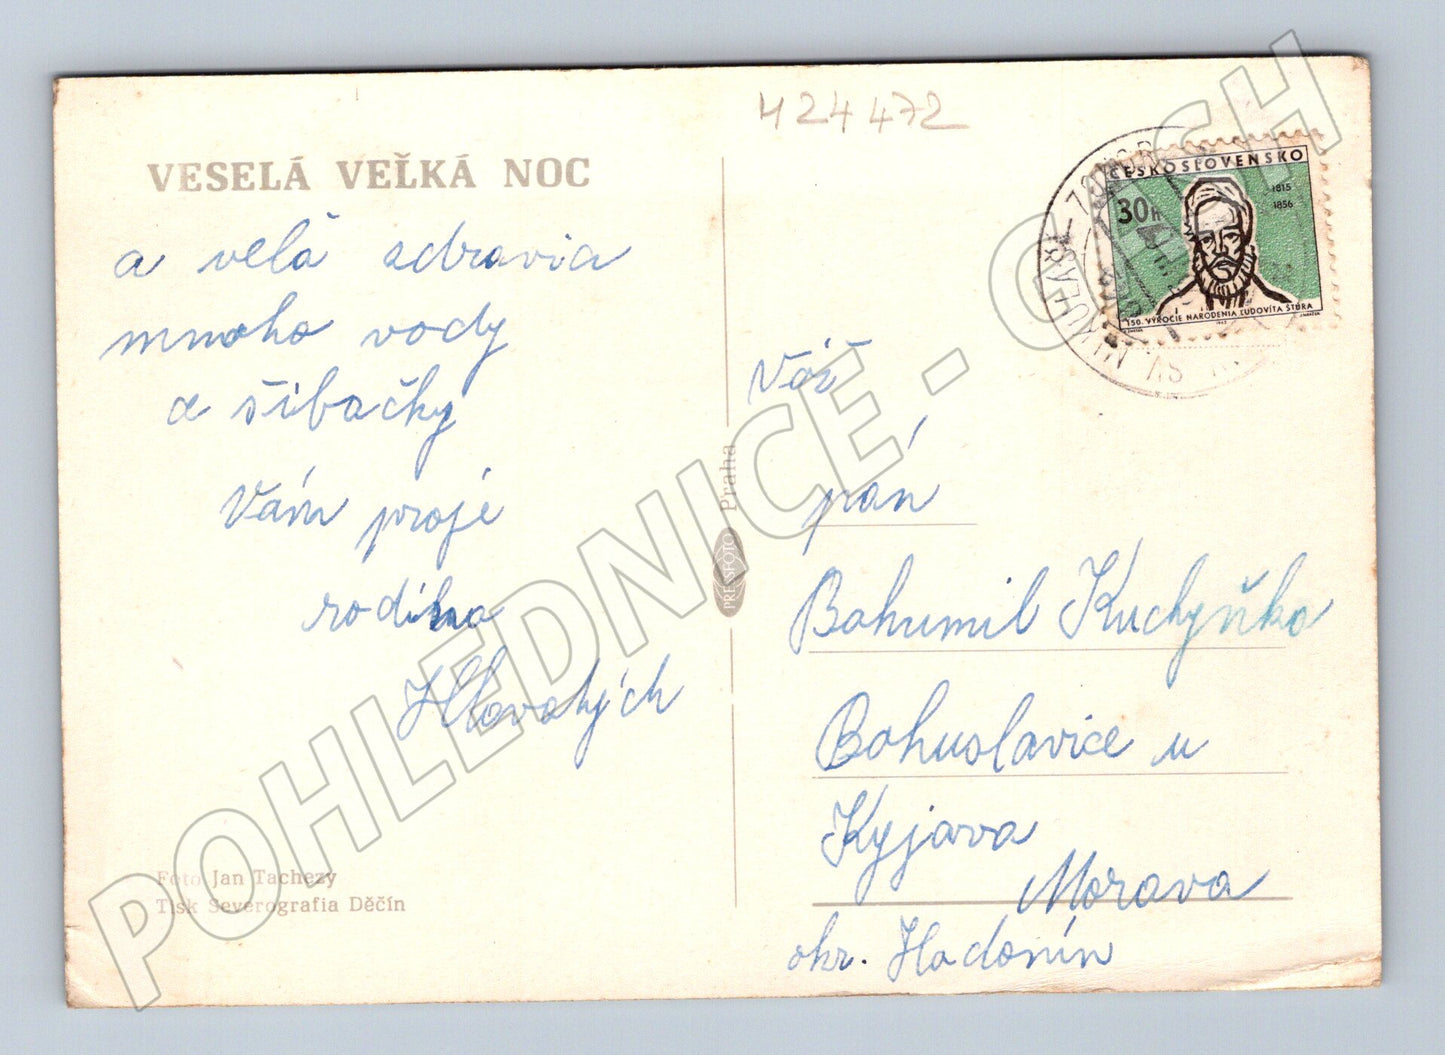 424472
VESELÁ VEĽKÁ NOC
a velà zdravia
mnoho vody
a šibačky
Vám praje
rodina
Hlavatých
Foto Jan Tachezy
Tisk Severografia Děčín
PRESSFOTO Praha
ČESKOSLOVENSKO
1815
1856
30h
150. VÝROČIE NARODENIA ĽUDOVÍTA ŠTÚRA
1965
Váž
pán
Bohumil Kuchyňka
Bohuslavice u
Kyjova
Morava
okr. Hodonín
POHLEDNICE - G - H